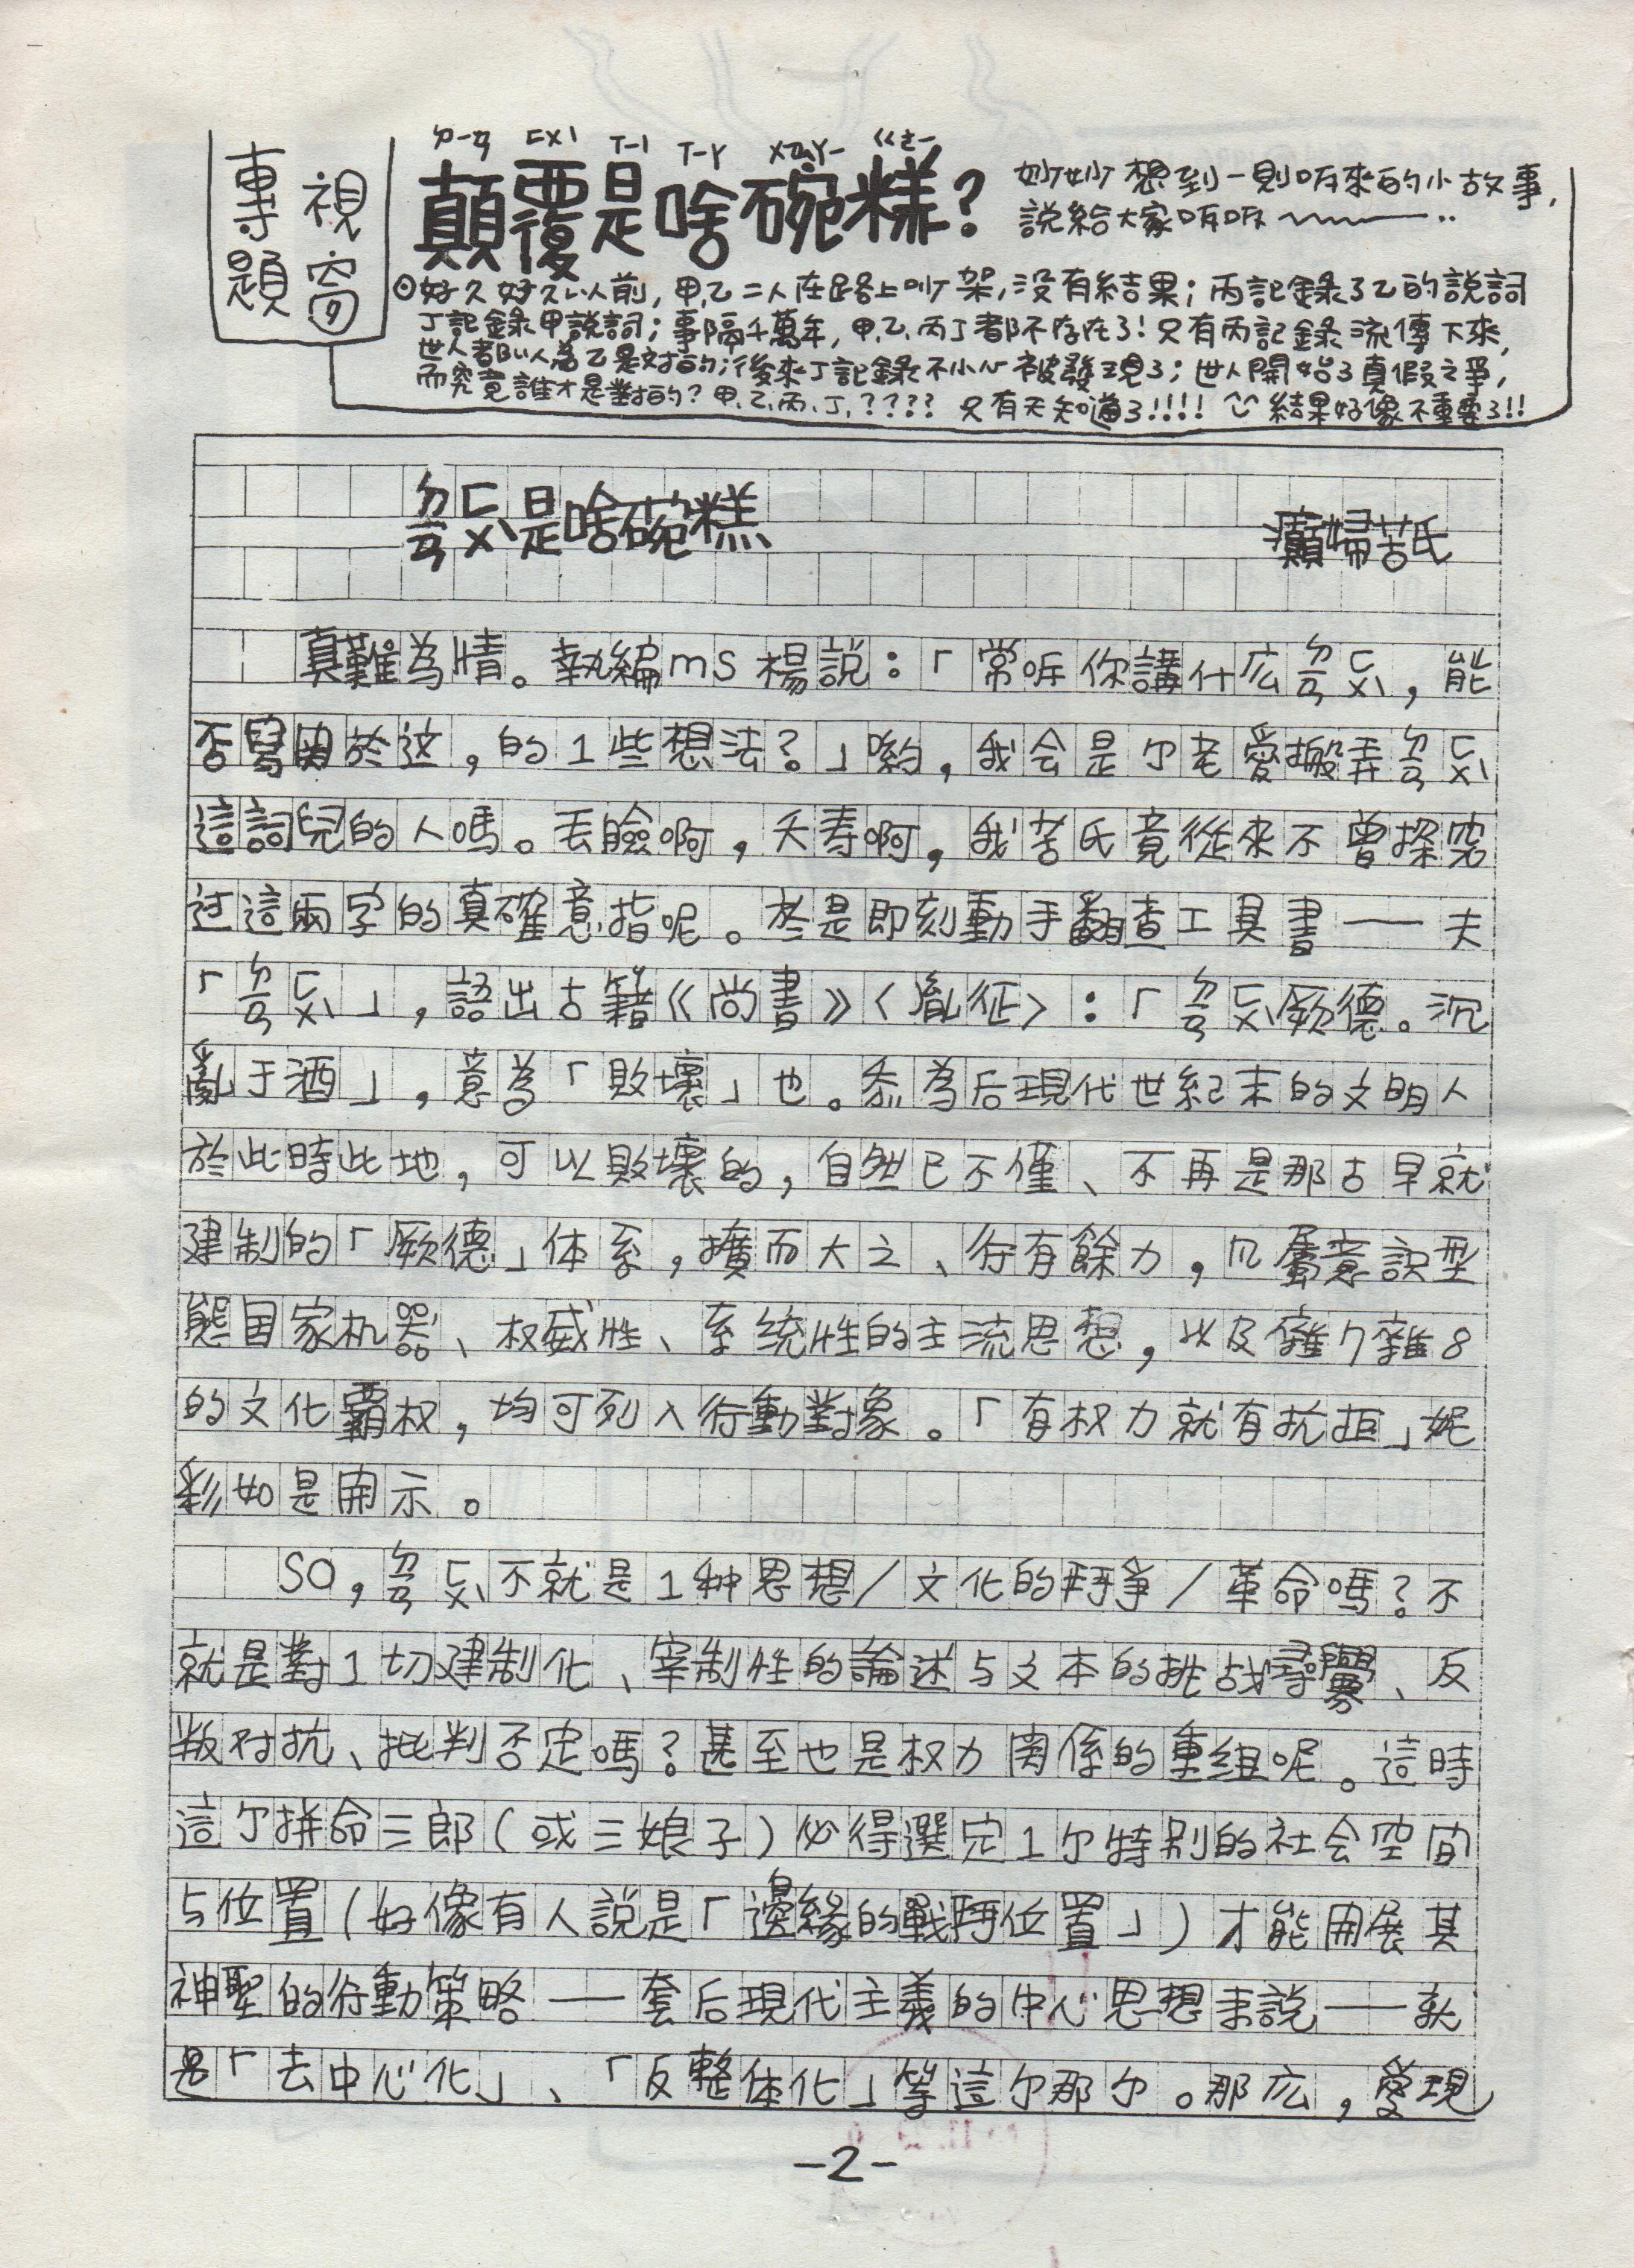 專題
視窗
ㄉㄧㄢ ㄈㄨˋ ㄒㄧˋ ㄒㄧㄚ ㄨㄢˇ ㄍㄜ
顛覆是啥碗糕？
妙妙想到一則听來的小故事，
說給大家听听～～～‥
⊙好久好久以前，甲、乙二人在路上吵架，没有結果；丙記錄了乙的說詞
丁記錄甲說詞；事隔千萬年，甲、乙、丙丁都不存在了！只有丙記錄流傳下來，
世人都以為乙是对的；後來丁記錄不小心被發現了；世人開始了真假之爭，
而究竟誰才是對的？甲、乙、丙、丁、？？？？ 只有天知道了！！！！ 結果好像不重要了！！
ㄉㄢ ㄈㄨˋ是啥碗糕
癲婦苦氏
真難為情。執編ms楊說：「常听你講什広ㄉㄢ ㄈㄨˋ，能
否寫関於这，的1些想法？」喲，我会是尔老愛搬弄ㄉㄢ ㄈㄨˋ
這詞兒的人嗎。丟臉啊，夭寿啊，我苦氏竟從來不曾探究
过這兩字的真確意指呢。於是即刻動手翻查工具書——夫
「ㄉㄢ ㄈㄨˋ」，語出古籍《尚書》〈胤征〉：「ㄉㄢ ㄈㄨˋ厥德。沉
亂于酒」，意為「敗壞」也。忝為后現代世紀末的文明人
於此時此地，可以敗壞的，自然已不僅、不再是那古早就
建制的「厥德」体系，擴而大之、行有餘力，凡屬意識型
態国家机器、权威性、系统性的主流思想，以及雜7雜8
的文化霸权，均可列入行動對象。「有权力就有抗拒」妮
彩如是開示。
SO，ㄉㄢ ㄈㄨˋ不就是1种思想／文化的鬥爭／革命嗎？不
就是對1切建制化、宰制性的論述与文本的挑战尋釁、反
叛对抗、批判否定嗎？甚至也是权力関係的重组呢。這時
這尔拼命三郎（或三娘子）必得選定1尔特别的社会空间
与位置（好像有人說是「邊緣的戰鬥位置」）才能開展其
神聖的行動策略——套后現代主義的中心思想来說——就
是「去中心化」、「反整体化」等這尔那尔。那広，愛現
-2-